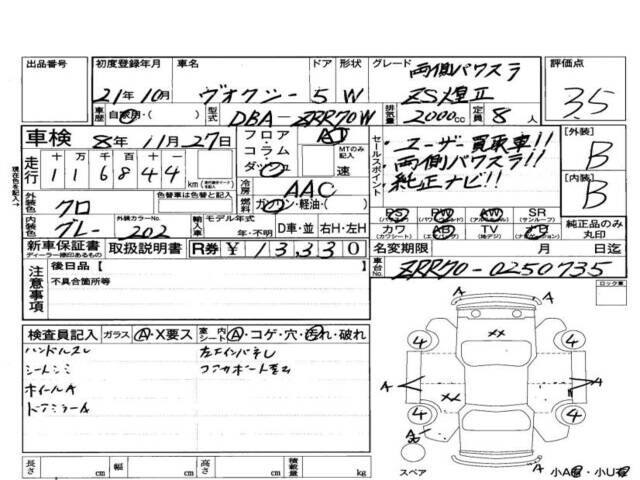 出品番号 初度登録年月 車名 ドア 形状 グレード 両側パワスラ 評価点
21年10月 ヴォクシー 5 W ZS煌Ⅱ 3.5
車歴 自家用・( ) 型式 DBA-ZRR70W 排気量 2000cc 定員 8人
車検 8年11月27日 フロア・コラム・ダッシュ AT MTのみ記入 速
セールスポイント ・ユーザー買取車!!
・両側パワスラ!!
・純正ナビ!!
[外装] B
[内装] B
走行 十 万 千 百 十 一
1 1 6 8 4 4 km
冷房 AAC
燃料 ガソリン・軽油・( )
外装色 クロ 色替車は色替と記入
内装色 グレー 外装カラーNo. 202 輸入車 モデル年式 年・不明 D車・並 右H・左H
PS PW AW SR (サンルーフ)
カワ (カワシート) AB TV (地デジ) ナビ
純正品のみ丸印
新車保証書 ディーラー捺印あるもの 取扱説明書 R券 ¥13,330
名変期限 月 日迄
車台No. ZRR70-0250735
現在色を記入→
注意事項 後日品[ ]
不具合箇所等
ロック車
検査員記入 ガラス A・X要ス 室内シート A・コゲ・穴・汚れ・破れ
ハンドルスレ 左エインパネし
シートシミ
ホイールA
ドアミラーA
4 4 4 4
XX XX
A A A A A A
長さ cm 幅 cm 高さ cm 積載量 kg
スペア 小A・小U